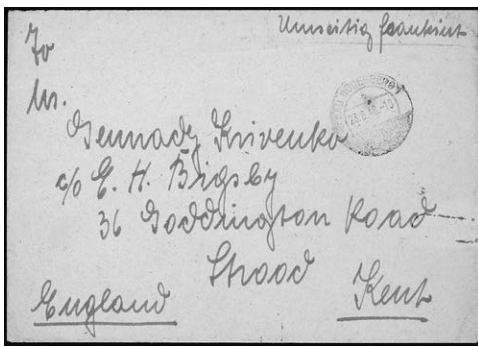 Umseitig frankiert
To
Mr.
Gennady Krivenko
c/o E. H. Bigsby
36 Goddington Road
Strood
England
Kent